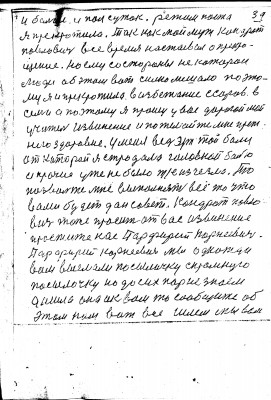 39
и болей. и пол суток. режим поста
я прекротила. Так как мой муж Кондрат
павлович все время настаивал о прекро-
щение. но ему со стороны не которои
люди об этом вот сильно мешало поэто-
му я и прекротила. во избежание ссоров. в
семи о поэтому я прошу у вас дорогой мой
учитель извинение и пожелайте мне преж-
него здоровие. У меня ведь эти боли
от которой я страдала головной болю
и прочие уже не было же исчезло. То
позвольте мне выполнять всё то что
вами будет дан совет. Кондрат павло-
вич тоже просит от вас извинение
простите нас Парфирий Корнеевич.
Парфирий Корнеевич мы однажды
вам выслали посылочку скромную
посылочку но до сих пор не знаем
дошла она к вам то сообщите об
этом нам вот все силем мы вам